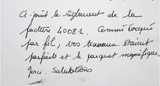 Ci-joint le règlement de la
facture 40081. Comme évoqué
par fil, vos travaux étaient
parfaits et le parquet magnifique.
Salutations